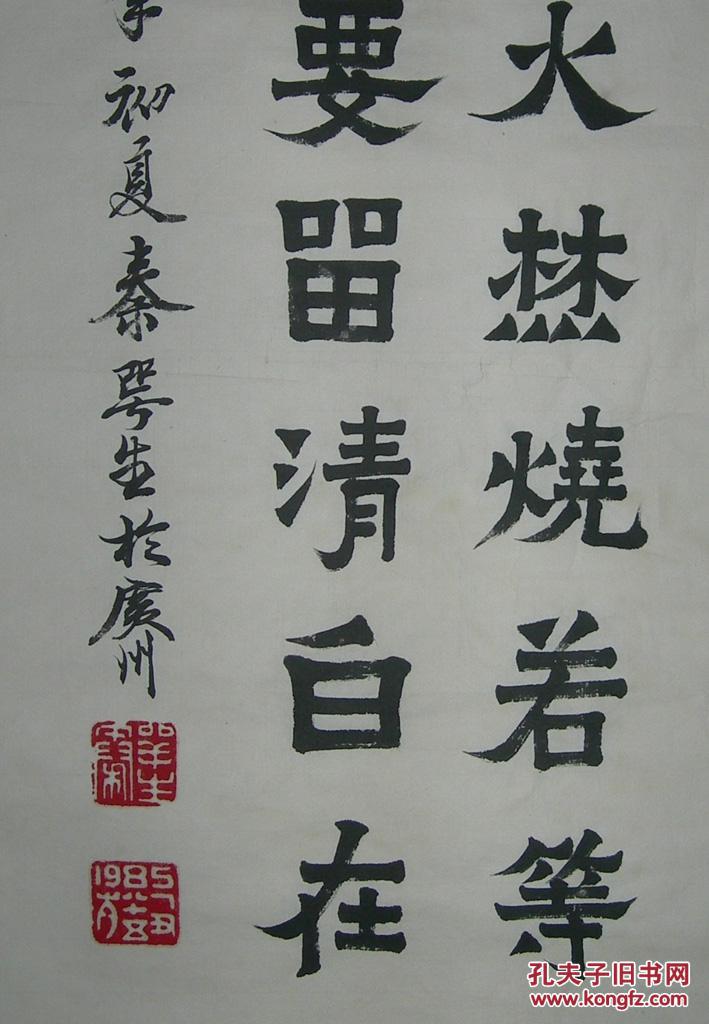 火焚燒若等
要留清白在
初夏秦咢生於廣州
1985
孔夫子旧书网
www.kongfz.com